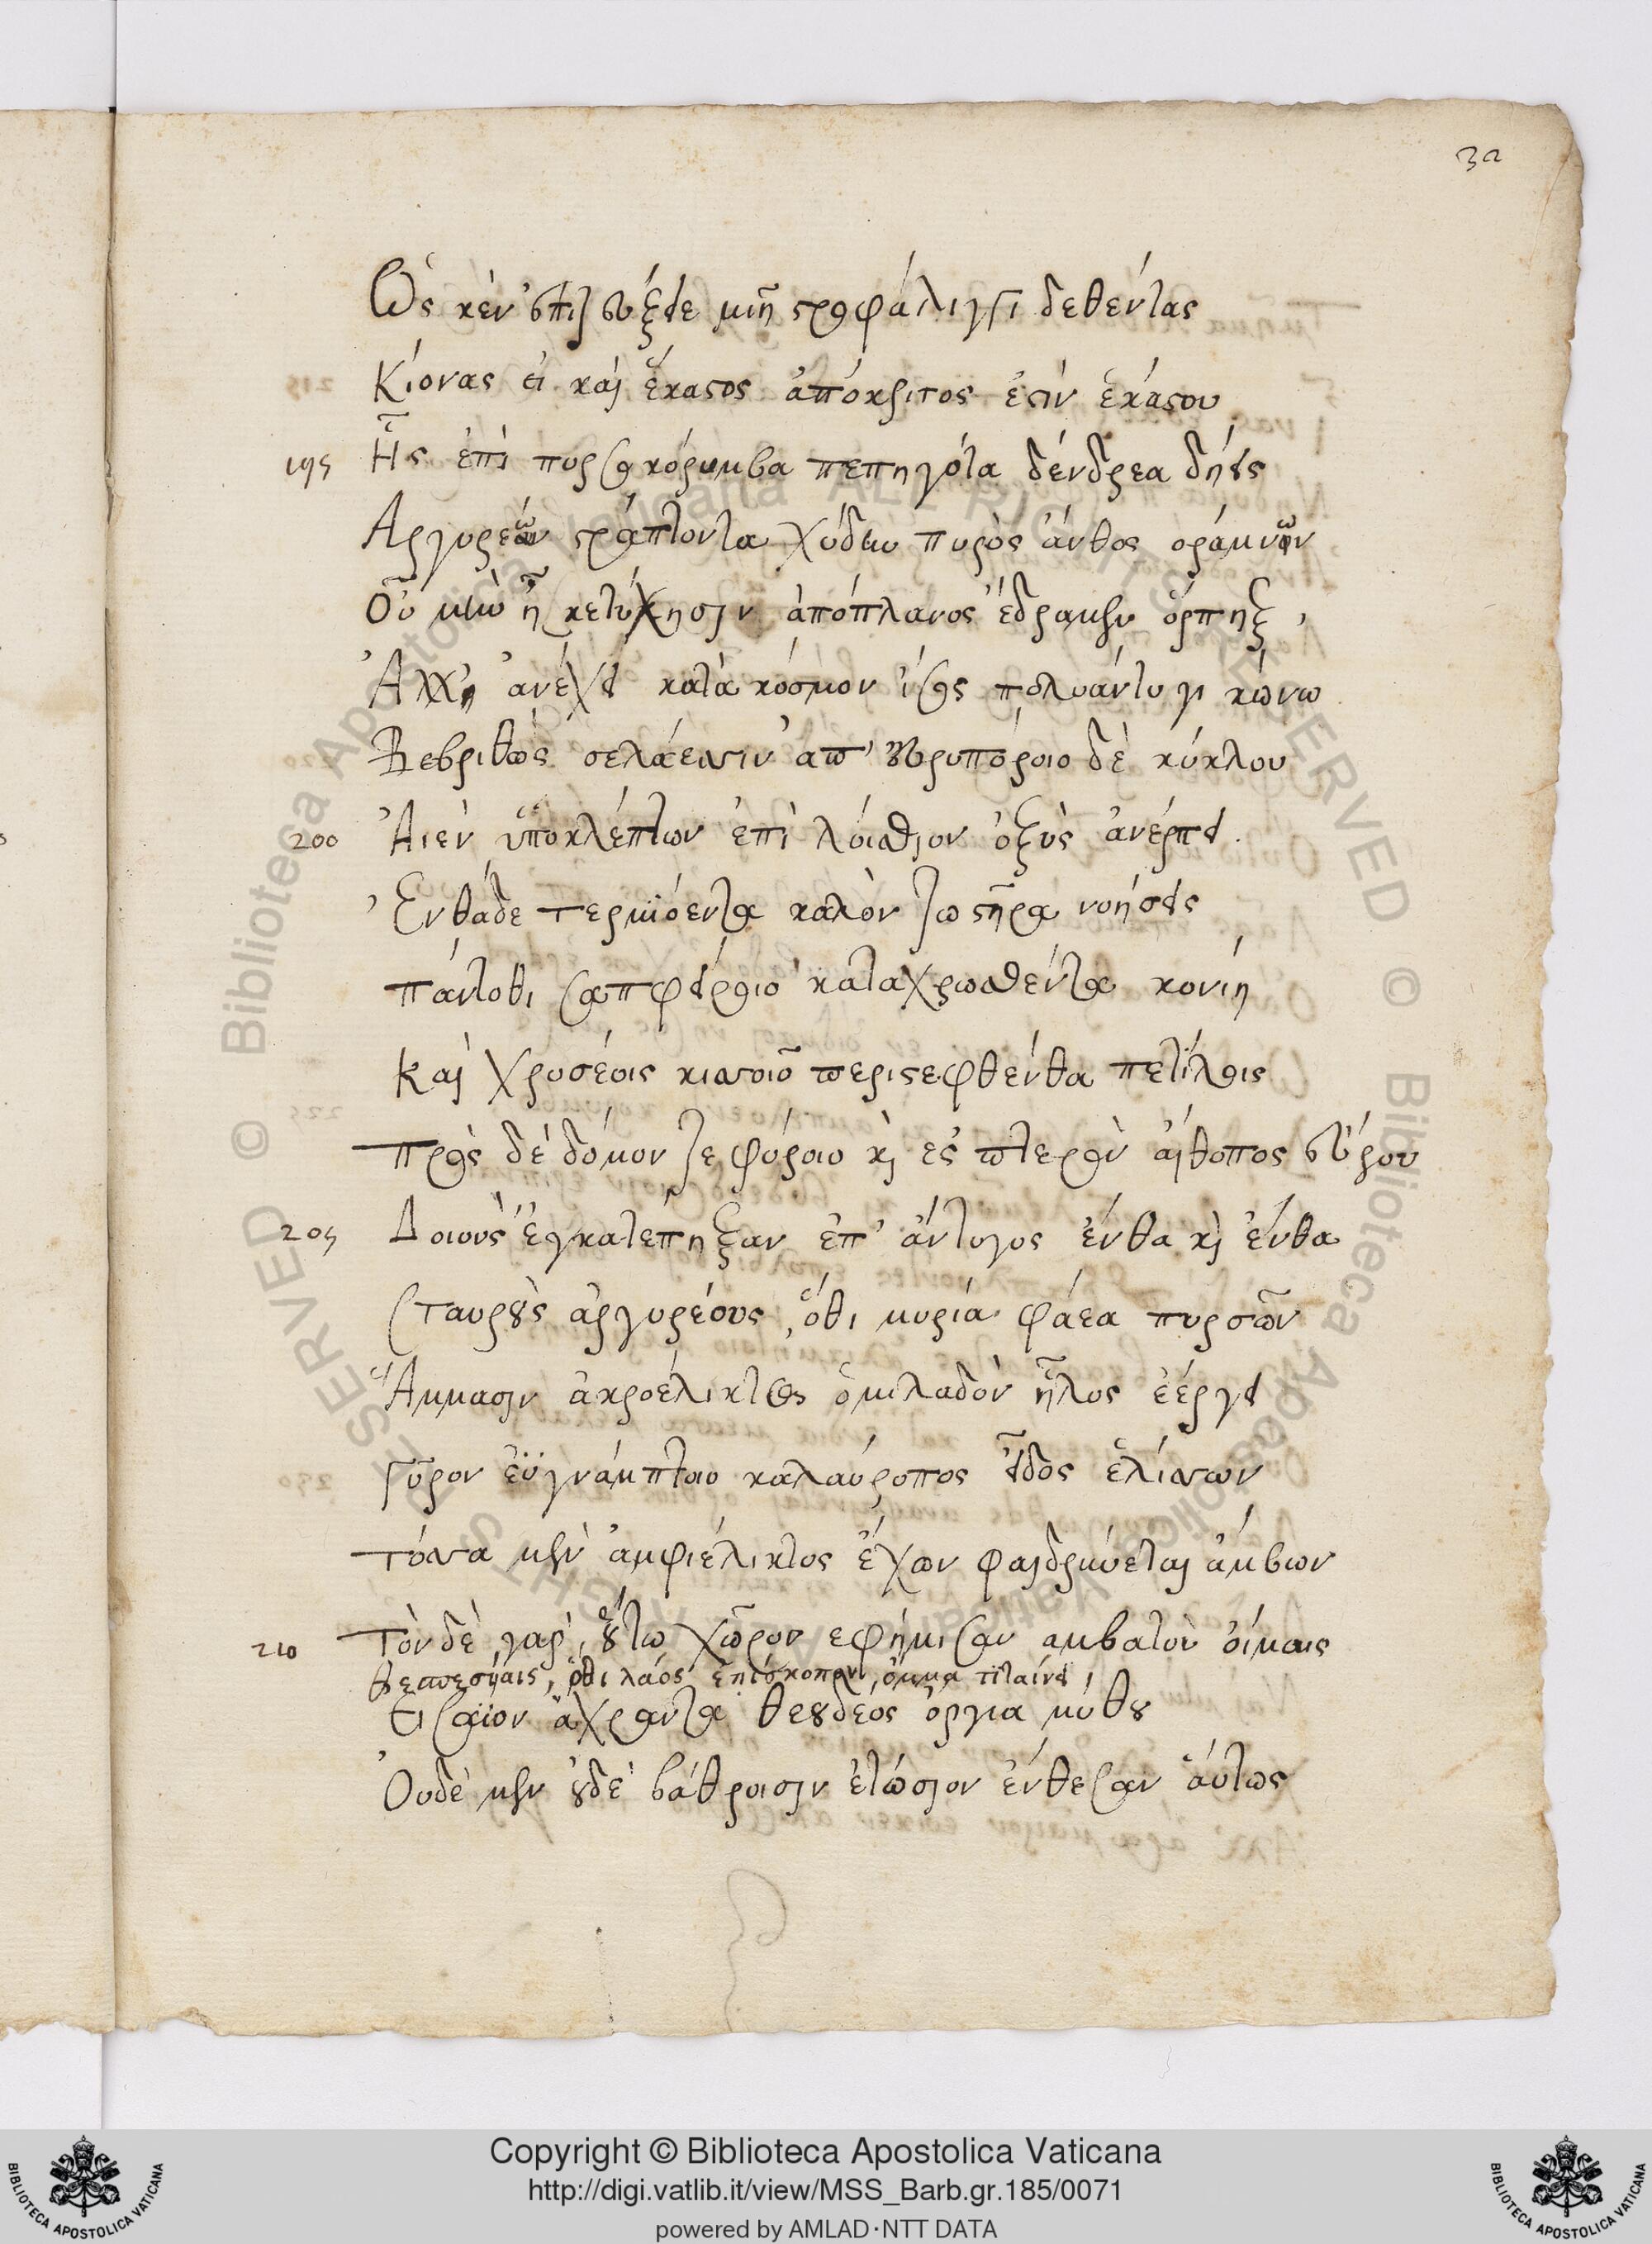 32
Ὥς κὲν ἐπιζεύξειε μιῇ στροφάλιγγι δεθέντας
Κίονας εἰ καὶ ἕκαστος ἀπόκριτος ἐστὶν ἑκάστου
195 Ἧς ἐπὶ πυρσοκόρυμβα πεπηγότα δένδρεα δήεις
Αργυρεων στράπτοντα χύδην πυρὸς ἄνθος ὀράμνων
Οὐ μὴν ᾗ κε τύχησιν ἀπόπλανος ἔδραμεν ὄρπηξ,
Ἀλλ' ἀνέχει κατὰ κόσμον ἴσος πολυάντυγι κώνω
Βεβριθὼς σελάεσσιν ἀπ' εὐρυπόροιο δὲ κύκλου
200 Ἀιὲν ὑποκλέπτων ἐπὶ λοίσθιον ὀξὺς ἀνέρπει.
Ἐνθάδε τερμϊόεντα καλὸν ζωστῆρα νοήσεις
πάντοθι σαπφείροιο καταχρωσθέντα κονίη
Καὶ χρυσέοις κισσοῖο περιστεφθέντα πετήλοις
πρὸς δὲ δόμον ζεφύροιο κὶ ἐς πτερὸν αἴθοπος εὔρου
205 Δοιοὺς ἐγκατέπηξαν ἐπ' ἄντυγος ἔνθα κὶ ἔνθα
Σταυροὺς ἀργυρέους, ὅθι μυρία φάεα πυρσῶν
Ἅμμασιν ἀκροέλικτος ὁμιλαδὸν ἧλος ἐέργει
Γῦρον ἐϋγνάμπτοιο καλαύροπος εἶδος ἑλίσσων
τόσσα μὲν ἀμφιέλικτος ἔχων φαιδρύνεται ἄμβων
210 τὸν δὲ γαρ, οὕτω χῶρον εφήμισαν αμβατὸν οἴμαις
θεσπεσίαις, ὅθι λαὸς ἐπίσκοπον ὄμμα τιταίνει,
Εισαϊον ἄχραντα θεουδέος ὄργια μύθου
Ὀυδὲ μὲν οὐδὲ βάθροισιν ἐτώσιον ἔνθεσαν αὔτως
Copyright © Biblioteca Apostolica Vaticana
http://digi.vatlib.it/view/MSS_Barb.gr.185/0071
powered by AMLAD·NTT DATA